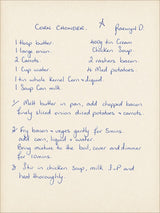 CORN CHOWDER. Rosewyn D.
1 tbsp butter. 400g tin Cream
1 large onion. Chicken Soup
2 Carrots 2 rashers bacon
1 Cup water 4 Med potatoes.
1 tin whole Kernel Corn + liquid
1 Soup Can milk.
1/ Melt butter in pan, add chopped bacon
finely sliced onion diced potatoes & carrots.
2/ Fry bacon & veges gently for 5 mins.
add corn, liquid & water.
Bring mixture to the boil, cover and simmer
for 10 mins.
3 Stir in chicken Soup, milk S & P and
heat thoroughly.